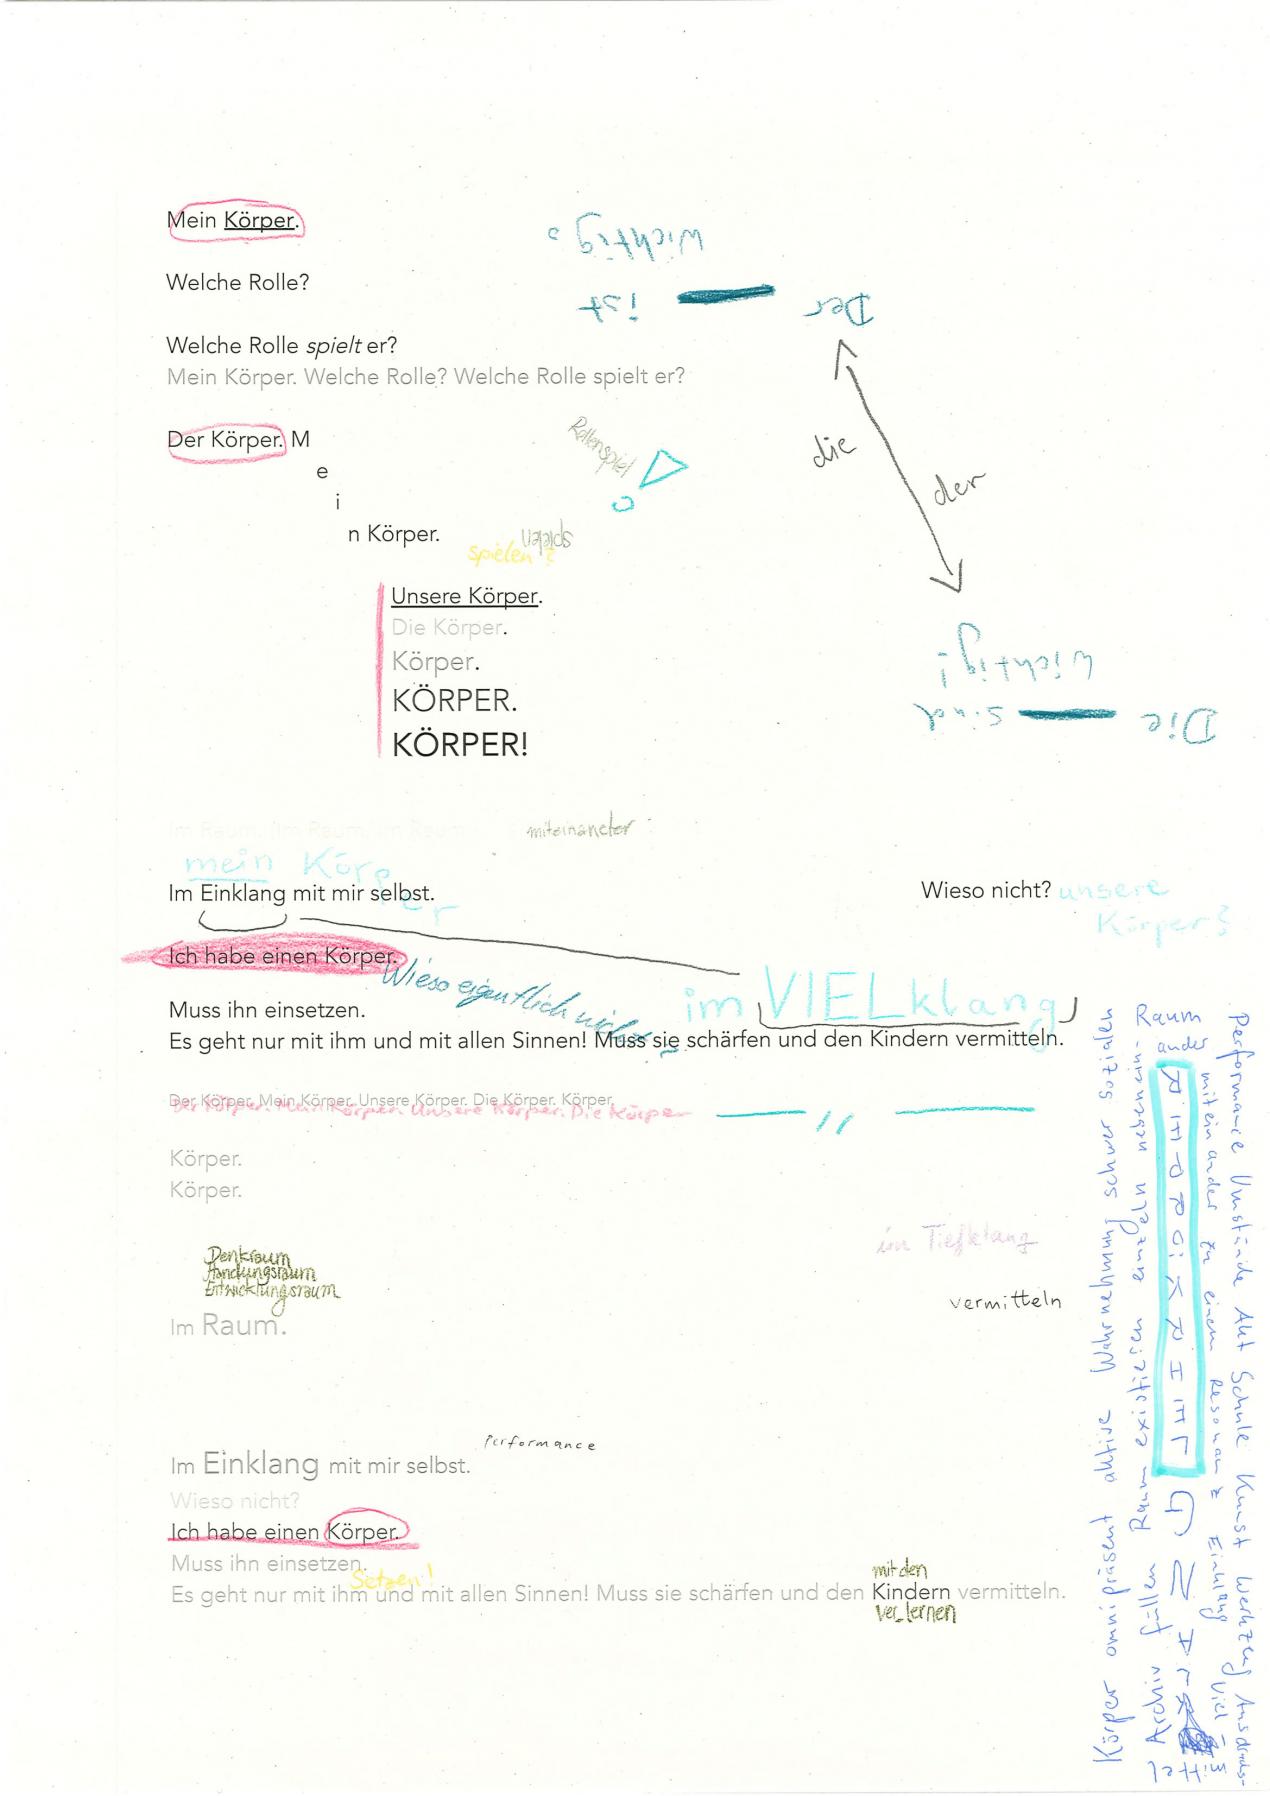 Mein Körper.
Wichtig?
Welche Rolle?
Der ist
Welche Rolle spielt er?
Mein Körper. Welche Rolle? Welche Rolle spielt er?
Der Körper. M
e
i
n Körper.
Rollenspiel
die
der
spielen
spielen?
Unsere Körper.
Die Körper.
Körper.
KÖRPER.
KÖRPER!
wichtig!
Die sind
Im Raum. Im Raum. Im Raum
miteinander
mein Körper
Im Einklang mit mir selbst.
Wieso nicht? unsere
Körper?
Ich habe einen Körper.
Wieso eigentlich nicht?
im VIELklang
Muss ihn einsetzen.
Es geht nur mit ihm und mit allen Sinnen! Muss sie schärfen und den Kindern vermitteln.
Der Körper. Mein Körper. Unsere Körper. Die Körper. Körper.
Der Körper. Mein Körper. Unsere Körper. Die Körper
Körper.
Körper.
im Tiefklang
Denkraum
Handlungsraum
Entwicklungsraum
vermitteln
Im Raum.
performance
Im Einklang mit mir selbst.
Wieso nicht?
Ich habe einen Körper.
Muss ihn einsetzen.
Setzen!
mit den
Es geht nur mit ihm und mit allen Sinnen! Muss sie schärfen und den Kindern vermitteln.
ver_lernen
Körper omnipräsent aktive Wahrnehmung schwer sozialen
Archiv füllen Raum existieren einzeln nebenein-
Raum
ander
miteinander zu einem Resonanz Einklang Viel
Performance Umstände Akt Schule Kunst Werkzeug Ausdrucks-